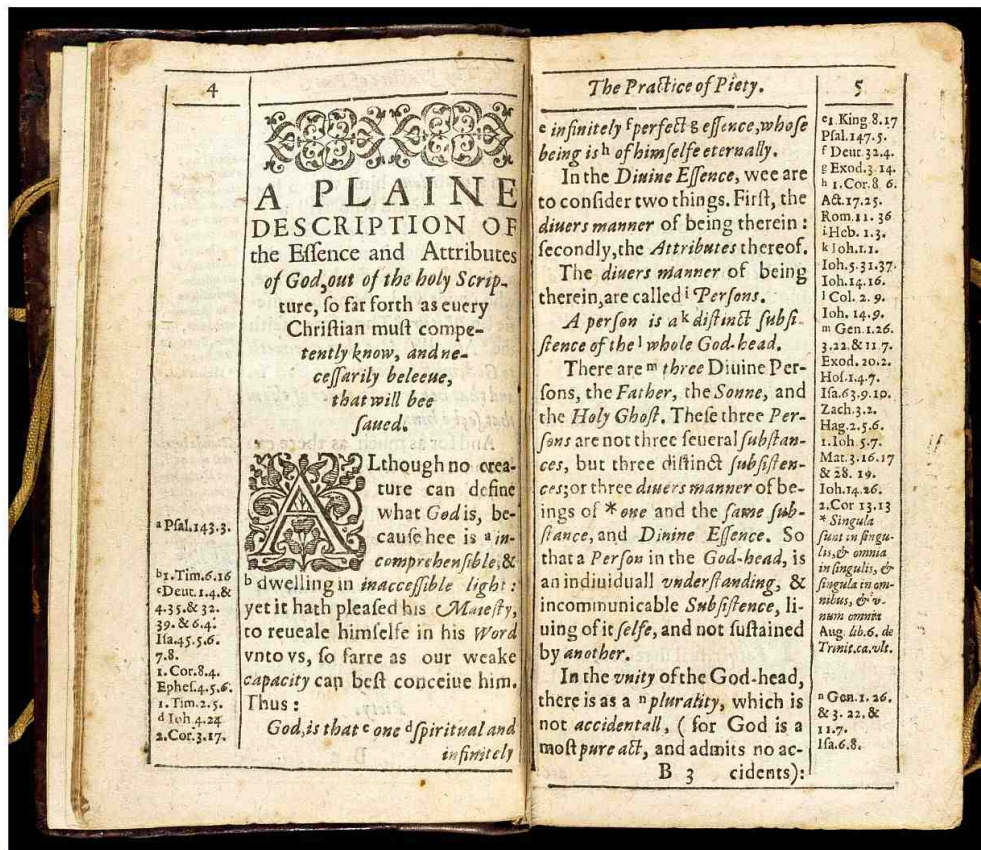 4
A PLAINE
DESCRIPTION OF
the Eſſence and Attributes
of God, out of the holy Scrip-
ture, ſo far forth as euery
Chriſtian muſt compe-
tently know, and ne-
ceſſarily beleeue,
that will bee
ſaued.
ALthough no crea-
ture can define
what God is, be-
cauſe hee is a in-
comprehenſible, &
b dwelling in inacceſſible light:
yet it hath pleaſed his Maieſty,
to reueale himſelfe in his Word
vnto vs, ſo farre as our weake
capacity can beſt conceiue him.
Thus:
God, is that c one d ſpiritual and
infinitely
a Pſal.143.3.
b 1.Tim.6.16
c Deut.1.4.&
4.35.& 32.
39.& 6.4.
Iſa.45.5.6.
7.8.
1.Cor.8.4.
Epheſ.4.5.6.
1.Tim.2.5.
d Ioh 4.24
2.Cor.3.17.
The Practice of Piety.
5
e infinitely f perfect g eſſence, whoſe
being is h of himſelfe eternally.
In the Diuine Eſſence, wee are
to conſider two things. Firſt, the
diuers manner of being therein:
ſecondly, the Attributes thereof.
The diuers manner of being
therein, are called i Perſons.
A perſon is a k diſtinct ſubſi-
ſtence of the l whole God-head.
There are m three Diuine Per-
ſons, the Father, the Sonne, and
the Holy Ghoſt. Theſe three Per-
ſons are not three ſeuerall ſubſtan-
ces, but three diſtinct ſubſiſten-
ces; or three diuers manner of be-
ings of * one and the ſame ſub-
ſtance, and Diuine Eſſence. So
that a Perſon in the God-head, is
an indiuiduall vnderſtanding, &
incommunicable Subſiſtence, li-
uing of it ſelfe, and not ſuſtained
by another.
In the vnity of the God-head,
there is as a n plurality, which is
not accidentall, ( for God is a
moſt pure act, and admits no ac-
B 3 cidents):
e 1.King.8.17
Pſal.147.5.
f Deut.32.4.
g Exod.3.14.
h 1.Cor.8 6.
Act.17.25.
Rom.11.36
i Heb.1.3.
k Ioh.1.1.
Ioh.5.31.37.
Ioh.14.16.
l Col.2.9.
Ioh.14.9.
m Gen.1.26.
3.22.& 11 7.
Exod.20.2.
Hoſ.1.4.7.
Iſa.63.9.10.
Zach.3.2.
Hag.2.5.6.
1.Ioh 5.7.
Mat.3.16.17
& 28.19.
Ioh.14.26.
2.Cor 13.13
* Singula
ſunt in ſingu-
lis, & omnia
in ſingulis, &
ſingula in om-
nibus, & v-
num omnia
Aug lib.6. de
Trinit.ca.vlt.
n Gen.1.26.
& 3.22.&
11.7.
Iſa.6.8.